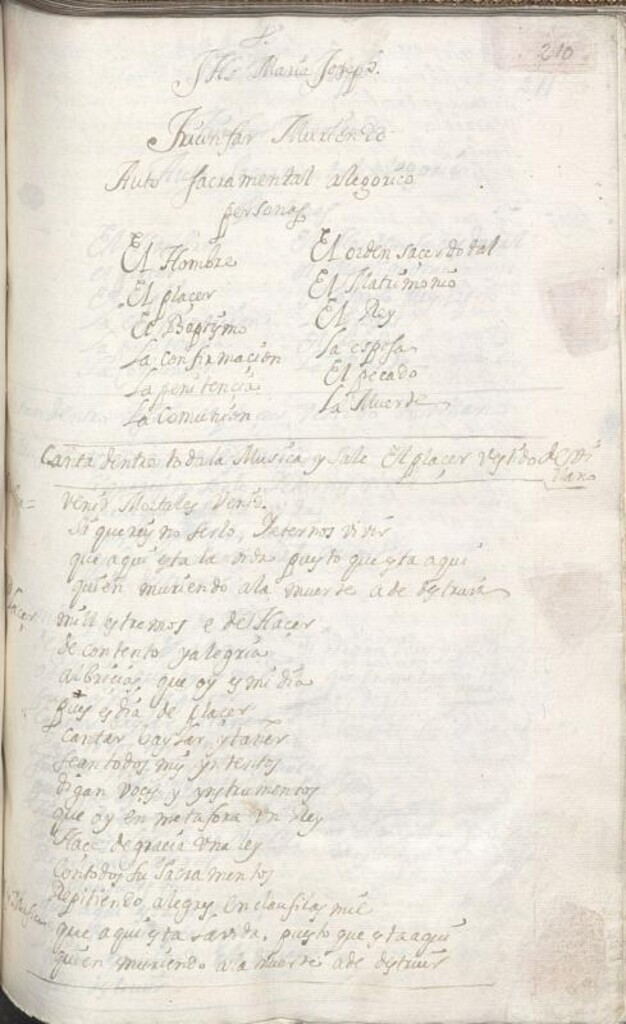 210
Jhs Maria Joseph.
Triunfar Muriendo
Auto sacramental alegorico
personas
El Hombre
El placer
El Baptismo
La confirmacion
La penitencia
La Comunion
El orden sacerdotal
El Matrimonio
El Rey
La esposa
El pecado
La Muerte
Canta dentro toda la Musica y Sale El placer vestido de
llano
Venid Mortales Venid.
Si quereys no serlo, Eternos vivir
que aqui esta la vida puesto que esta aqui
quien muriendo a la muerte a de destruir
Placer
mill estremos e de Hacer
de contento y alegria
albricias que oy es mi dia
pues es dia de placer
cantar baylar y tañer
sean todos mis yntentos
digan voces y ynstrumentos
que oy en metafora un Rey
Hace de gracia una ley
Con todos su Sacramentos
Repitiendo alegres en clausulas mil
que aqui esta la vida, puesto que esta aqui
quien muriendo a la muerte a de destruir